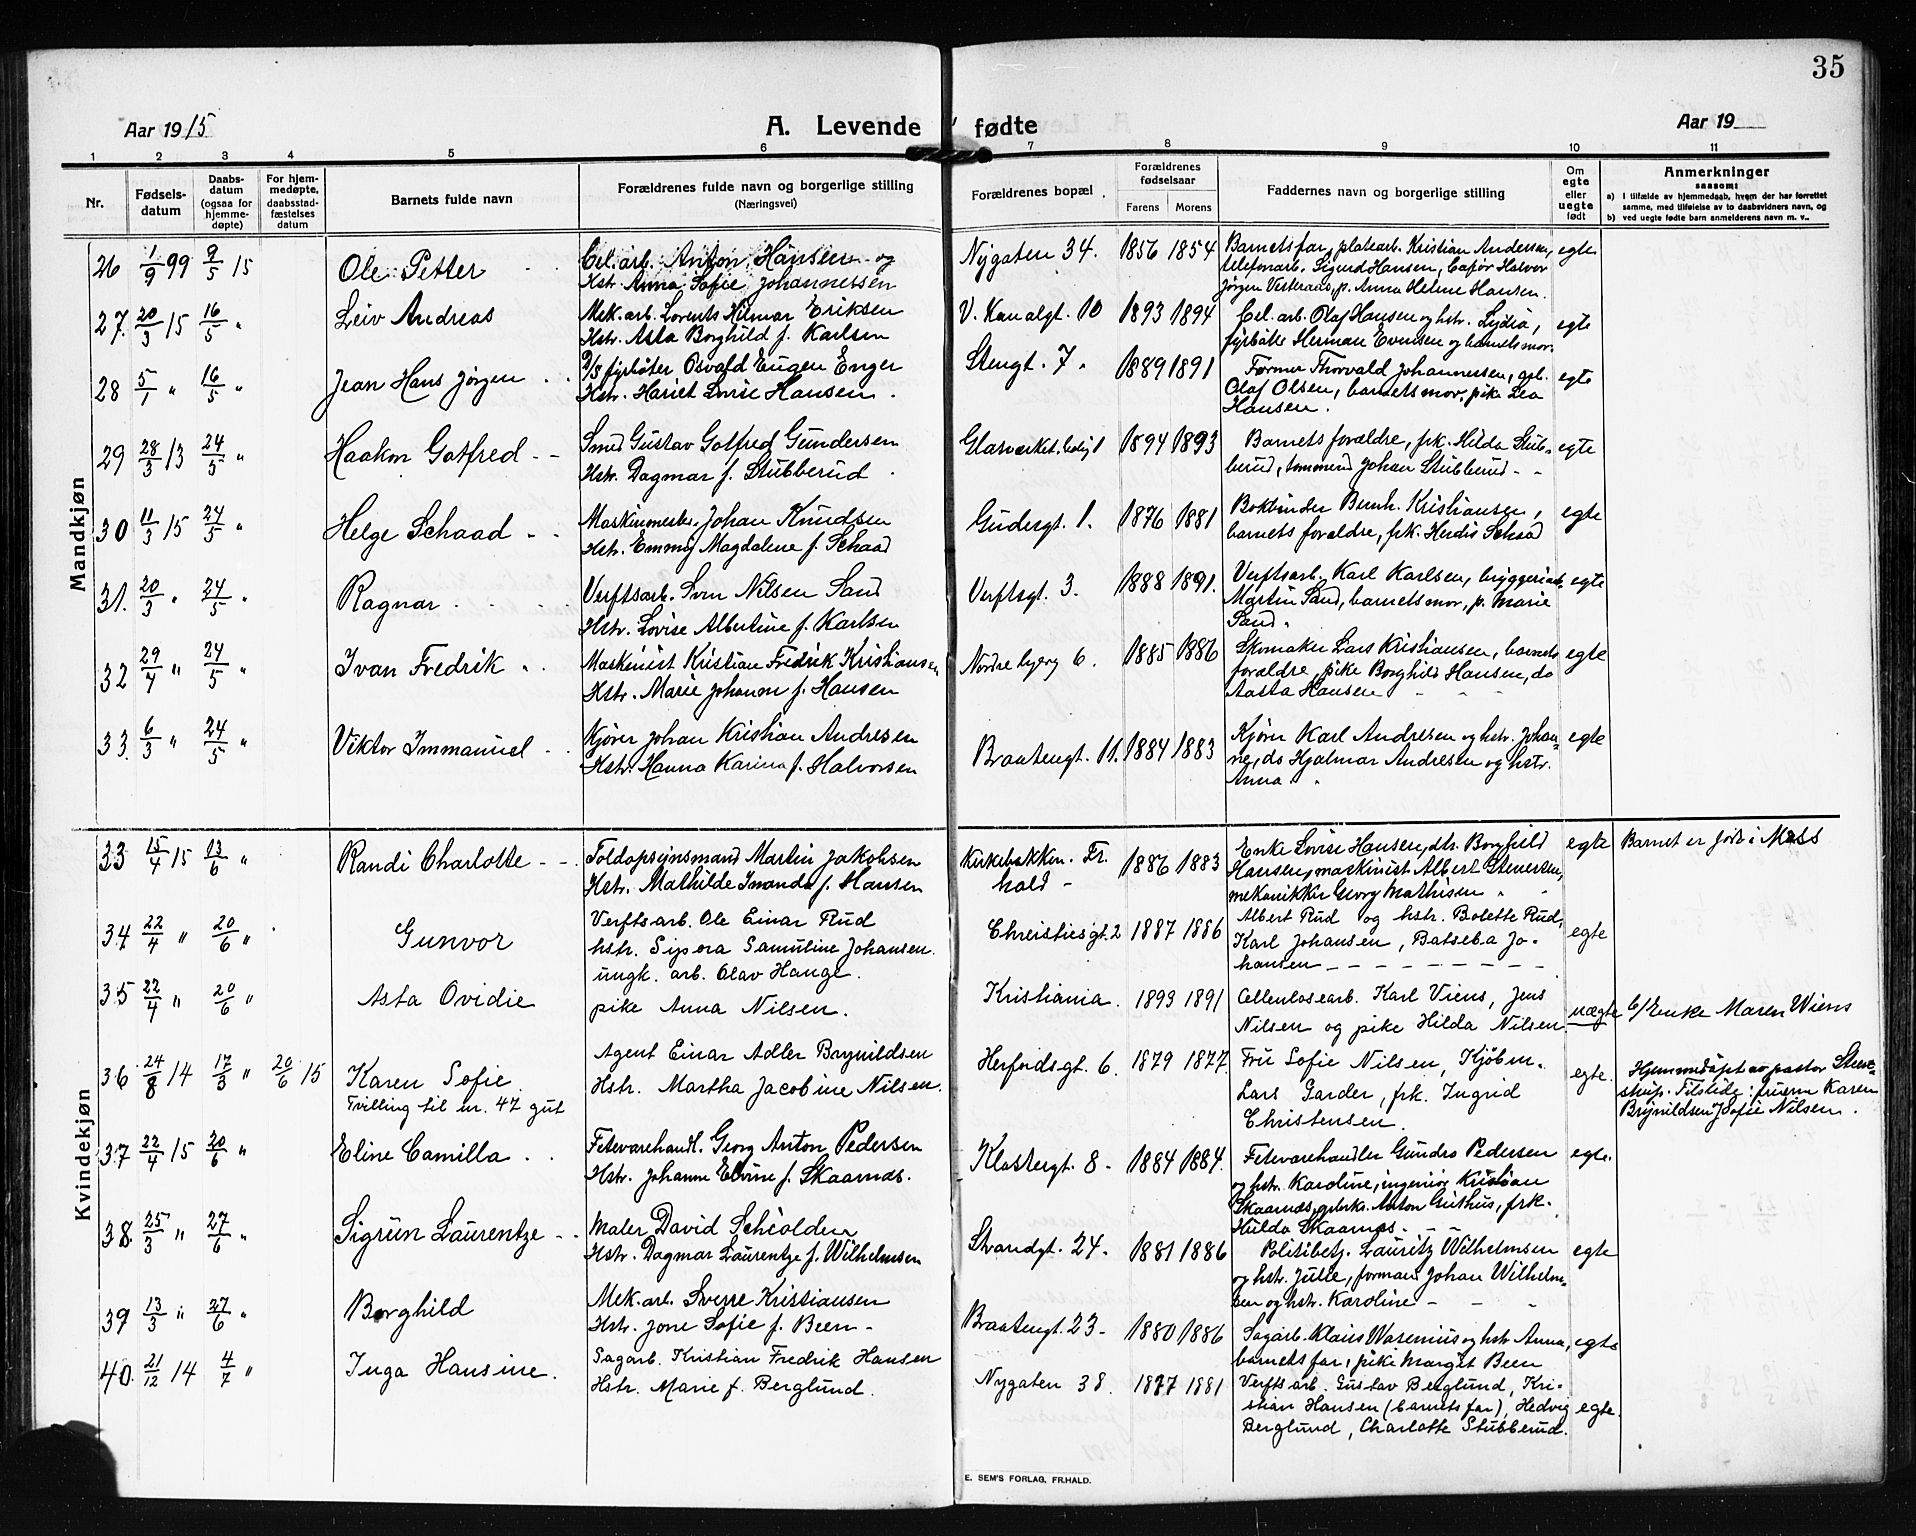 35
Aar 1915
A. Levende fødte
Aar 19
1 2 3 4 5 6 7 8 9 10 11
Nr.
Fødselsdatum
Daabsdatum (ogsaa for hjemmedøpte)
For hjemmedøpte, daabsstadfæstelses datum
Barnets fulde navn
Forældrenes fulde navn og borgerlige stilling
(Næringsvei)
Forældrenes bopæl
Forældrenes fødselsaar
Farens Morens
Faddernes navn og borgerlige stilling
Om egte eller uegte født
Anmerkninger
saasom:
a) I tilfælde av hjemmedaab, hvem der har forrettet samme, med tilføielse av to daabsvidners navn, og
b) ved uegte fødte barn anmelderens navn m. v.
Mandkjøn
26 1/9 99 9/5 15 Ole Petter
Cel. arb. Anton Hansen og
Hstr. Anna Sofie Johannessen
Nygaten 34. 1856 1854
Barnets far, platearb. Kristian Andersen,
telefonarb. Sigurd Hansen, Halvor
Jørgen Vesteraas, p. Anna Helene Hansen.
egte
27. 20/3 15 16/5 " Leiv Andreas
Mek. arb. Lorents Hilmar Eriksen
Hstr. Asta Borghild f. Karlsen
V. Kanalgt. 10 1893 1894
Cel. arb. Olaf Hansen og hstr. Lydia,
fyrbøter Herman Evensen og barnets mor.
egte
28 5/1 " 16/5 " Jean Hans Jørgen
D/S fyrbøter Osvald Eugen Enger
Hstr. Hariet Lovise Hansen.
Stengt. 7. 1889 1891
Former Thorvald Johannessen, arb.
Olaf Olsen, barnets mor, pike Lea
Hansen.
egte
29 28/3 13 24/5 " Haakon Gotfred
Smed Gustav Gotfred Gundersen
Hstr. Dagmar f. Stubberud.
Glasværket bolig 1 1894 1893
Barnets forældre, frk. Hilda Stub-
berud, tømmermd Johan Stubberud
egte
30 11/3 15 24/5 " Helge Schaad
Maskinmester Johan Knudsen
Hstr. Emmy Magdalene f. Schaad
Gudesgt. 1. 1876 1881
Bokbinder Bernh. Kristiansen,
barnets forældre, frk. Herdis Schaad
egte
31. 20/3 " 24/5 " Ragnar
Verftsarb. Sven Nilsen Sand
Hstr. Lovise Albertine f. Karlsen
Verftsgt. 3. 1888 1891.
Verftsarb. Karl Karlsen, bryggeriarb.
Martin Sand, barnets mor, p. Marie
Sand.
egte
32 29/4 " 24/5 " Ivan Fredrik
Maskinist Kristian Fredrik Kristiansen
Hstr. Marie Johanne f. Hansen
Nordre bjerg 6. 1885 1886
Skomaker Lars Kristiansen, barnets
forældre, pike Borghild Hansen, do
Aasta Hansen
egte
33. 6/3 " 24/5 " Viktor Immanuel
Kjører Johan Kristian Andresen
Hstr. Hanna Karina f. Halvorsen
Braatengt. 11. 1884 1883
Kjører Karl Andresen og hstr. Johan-
ne, do Hjalmar Andresen og hstr.
Anna
egte
Kvindekjøn
33 15/4 15 13/6 " Randi Charlotte
Toldopsynsmand Martin Jakobsen
Hstr. Mathilde Inanda f. Hansen
Kirkebakken. Fr.
hald 1886 1883
Enke Lovise Hansen, dtr. Borghild
Hansen, maskinist Albert Stenersen,
mekanikker Georg Mathisen
egte
Barnet er født i Moss
34 22/4 " 20/6 " Gunvor
Verftsarb. Ole Einar Rud
hstr. Signora Samuline Johansen.
Christiesgt. 2 1887 1886
Albert Rud og hstr. Bolette Rud,
Karl Johansen, Batseba Jo-
hansen
egte
35 22/4 " 20/6 " Asta Ovidie
ungk. arb. Olav Hauge.
pike Anna Nilsen.
Kristiania. 1893 1891
Cellulosearb. Karl Viens, Jens
Nilsen og pike Hilda Nilsen
uægte
b/ Enke Maren Wiens
36 24/8 14 17/3 " 20/6 15 Karen Sofie.
Tvilling til nr. 47 gut
Agent Einar Adler Brynildsen
Hstr. Martha Jacobine Nilsen.
Herfordsgt. 6. 1879 1877
Fru Sofie Nilsen, Kjøbm.
Lars Garder, frk. Ingrid
Christensen.
egte.
Hjemmedøpt av pastor Steen-
strup. Tilstede: fruerne Karen
Brynildsen, Sofie Nilsen.
37 22/4 15 20/6 " Eline Camilla
Fetevarehandl. Georg Anton Pedersen
Hstr. Johanne Elvine f. Skaarnæs.
Klostergt. 8 1884 1884.
Fetevarehandler Gundro Pedersen
og hstr. Karoline, ingeniør Kristian
Skaarnæs, Anton Guthus, frk.
Hulda Skaarnæs.
egte.
38. 25/3 " 27/6 " Sigrun Laurentze
Maler David Schiolden
Hstr. Dagmar Laurentze f. Wilhelmsen
Strandgt. 24. 1881 1886
Politibetj. Lauritz Wilhelmsen
og hstr. Julie, formand Johan Wilhelm-
sen og hstr. Karoline
egte
39 13/3 " 27/6 " Borghild
Mek. arb. Sverre Kristiansen
Hstr. Jone Sofie f. Been
Braatengt. 23 1880 1886
Sagarb. Klaus Warenius og hstr. Anna,
barnets far, pike Margit Been
egte
40. 21/12 14 4/7 " Inga Hansine.
Sagarb. Kristian Fredrik Hansen
Hstr. Marie f. Berglund.
Nygaten 38. 1877 1881
Verftsarb. Gustav Berglund, Kri-
stian Hansen (barnets far), Hedvig
Berglund, Charlotte Stubberud.
egte.
E. SEM'S FORLAG, FR.HALD.